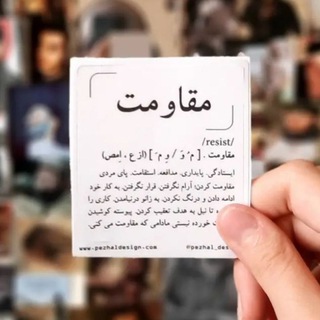 مقاومت
/resist/
مقاومت . [ مُ وَ / وِ مَ ] (از ع ، اِمص)
ایستادگی. پایداری. مدافعه. استقامت. پای مردی
مقاومت کردن: آرام نگرفتن. قرار نگرفتن. به کار خود
ادامه دادن و درنگ نکردن. به زانو درنیامدن. کاری را
تا نیل به هدف تعقیب کردن. پیوسته کوشیدن
خورده نیستی مادامی که مقاومت می کنی.
www.pezhaldesign.com
@pezhal_des